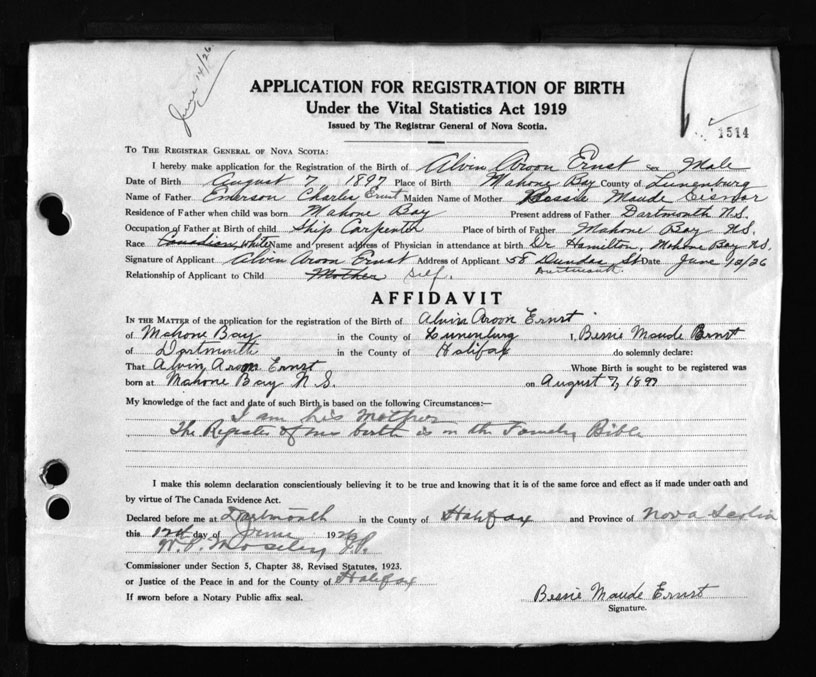 June 14/26
APPLICATION FOR REGISTRATION OF BIRTH
Under the Vital Statistics Act 1919
Issued by The Registrar General of Nova Scotia.
1514
TO THE REGISTRAR GENERAL OF NOVA SCOTIA:
I hereby make application for the Registration of the Birth of Alvin Aroon Ernst Sex Male
Date of Birth August 7, 1897 Place of Birth Mahone Bay County of Lunenburg
Name of Father Emerson Charles Ernst Maiden Name of Mother Bessie Maude Eisnor
Residence of Father when child was born Mahone Bay Present address of Father Dartmouth N.S.
Occupation of Father at Birth of child Ship Carpenter Place of birth of Father Mahone Bay N.S.
Race Canadian, White Name and present address of Physician in attendance at birth Dr Hamilton, Mahone Bay N.S.
Signature of Applicant Alvin Aroon Ernst Address of Applicant 58 Dundas St Date June 12/26
Dartmouth
Relationship of Applicant to Child Mother self.
AFFIDAVIT
IN THE MATTER of the application for the registration of the Birth of Alvin Aroon Ernst
of Mahone Bay in the County of Lunenburg I, Bessie Maude Ernst
of Dartmouth in the County of Halifax do solemnly declare:
That Alvin Aroon Ernst Whose Birth is sought to be registered was
born at Mahone Bay N S. on August 7, 1897
My knowledge of the fact and date of such Birth is based on the following Circumstances:—
I am his Mother
The Register of his birth is in the Family Bible
I make this solemn declaration conscientiously believing it to be true and knowing that it is of the same force and effect as if made under oath and
by virtue of The Canada Evidence Act.
Declared before me at Dartmouth in the County of Halifax and Province of Nova Scotia
this 12th day of June 1926
W. P. Moseley J.P.
Commissioner under Section 5, Chapter 38, Revised Statutes, 1923.
or Justice of the Peace in and for the County of Halifax
If sworn before a Notary Public affix seal.
Bessie Maude Ernst
Signature.